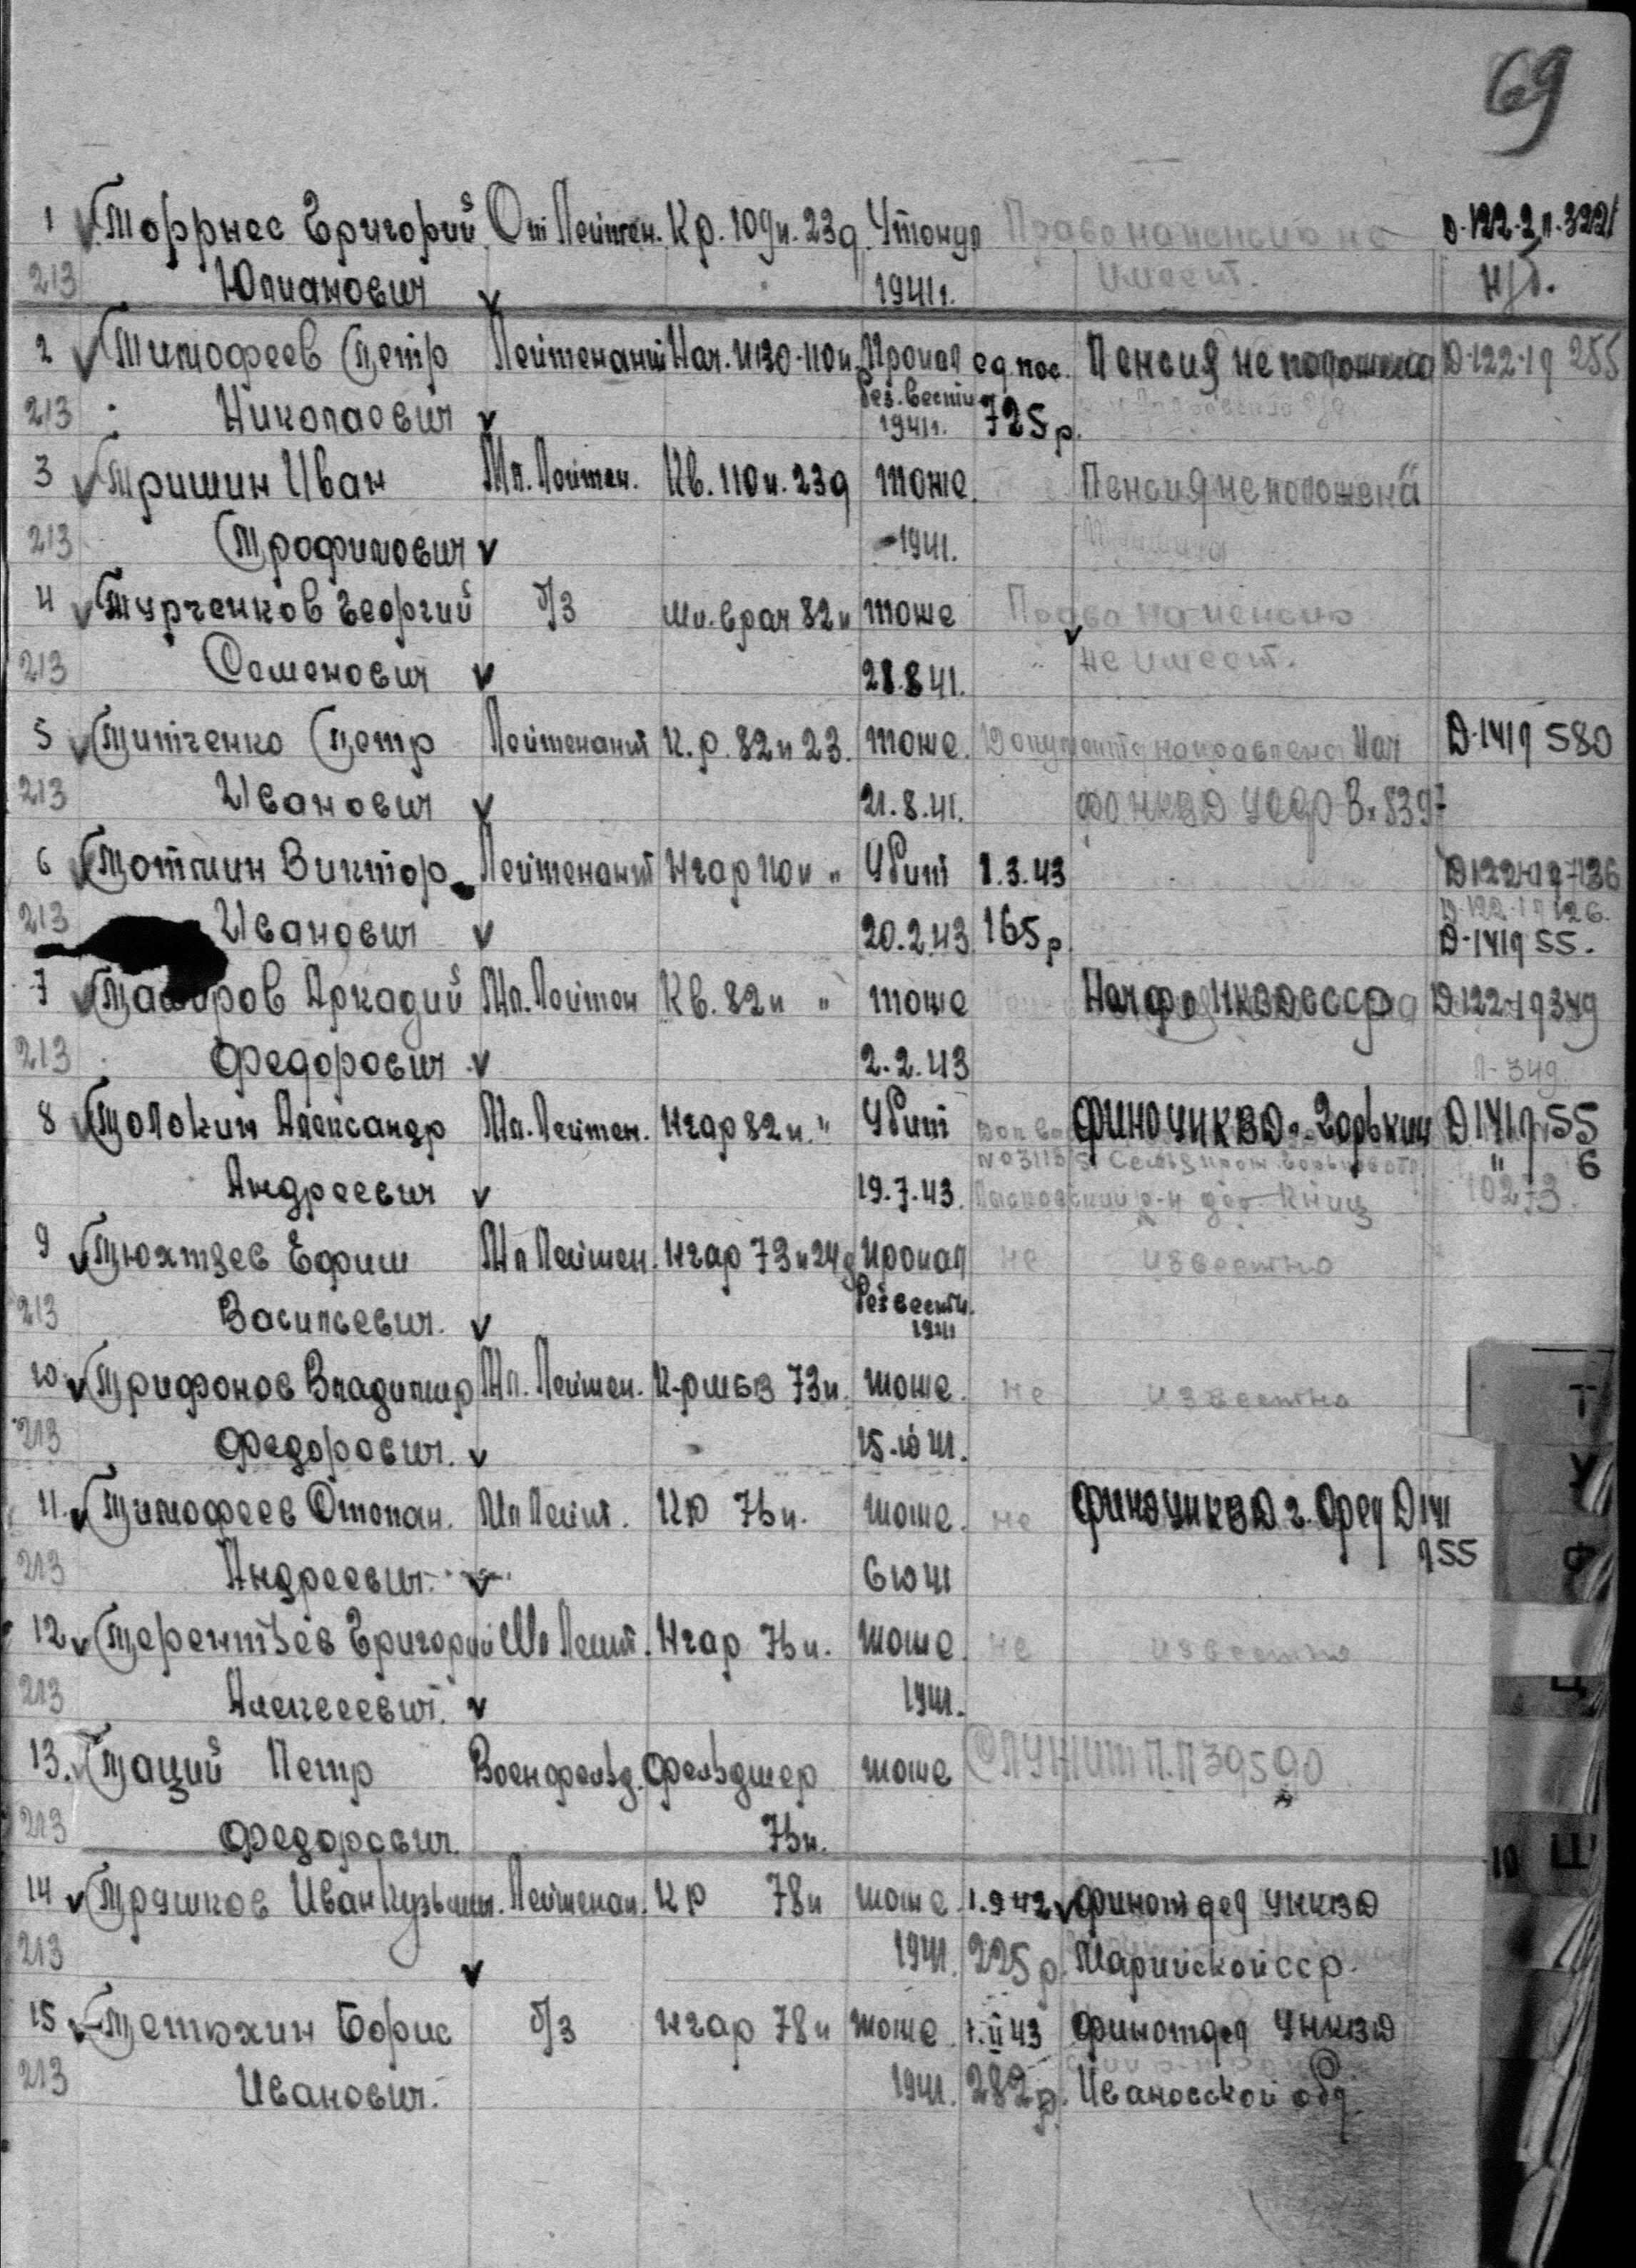 69
1 Моррнес Григорий Ст Лейтен. Кр. 109п. 23д. Утонул Право на пенсию не Д-122-2 п. 322
213 Юлианович 1941г. имеет. н/б.
2 Тимофеев Петр Лейтенант Нач. ИВО-110п. Пропал ед. пос. Пенсия не положена Д-122-19 255
213 Николаевич без вести 1941г. 725 р.
3 Тришин Иван Мл. Лейтен. Кв. 110п. 23д тоже. Пенсия не положена
213 Трофимович 1941.
4 Турченков Георгий б/з мл. врач 82п тоже Право на пенсию
213 Семенович 28.8 41. не имеет.
5 Титченко Петр Лейтенант К.р. 82п 23. тоже. Документы направлены Нач Д-1419 580
213 Иванович 21.8.41. ФО НКВД УССР Вх 8397
6 Тотмин Виктор Лейтенант Нчар 110п " Убит 1.3.43 Д-122-19-7136
213 Иванович 20.2.43 165 р. Д-122-19 126.
Д-1419 55.
7 Аркадий Мл. Лейтен Кв. 82п " тоже Нач фо НКВД СССР Д-122-19 349
213 Федорович 2.2.43 349
8 Толокин Александр Мл. Лейтен. Нчар 82п. " Убит ФИНО УНКВД г. Горький Д 1419 55
" 6
№ 3113 Семья прож.
213 Андреевич 19.7.43. р-н 10273.
9 Тюхтяев Ефим Мл Лейтен. Нчар 73п 24д Пропал не известно
213 Васильевич. без вести.
1941
10 Трифонов Владимир Мл. Лейтен. 73п. тоже. не известно
213 Федорович. 15.10 41.
11. Тимофеев Степан. Мл Лейт. КР 73п. тоже. не ФИНО УНКВД г. Орел Д 141
955
213 Андреевич. 6 10 41
12 Терентьев Григорий Мл Лейт. Нчар 73п. тоже. не известно
213 Алексеевич. 1941.
13. Тацый Петр Военфельд. Фельдшер тоже Служит П.П 39590
213 Федорович. 73п.
14 Трушков Иван Кузьмич. Лейтенан. КР 78п тоже 1.9 42 Финотдел УНКВД
213 1941. 225 р. Марийской ССР.
15 Тетюхин Борис б/з Нчар 78п тоже 1.II 43 Финотдел УНКВД
213 Иванович. 1941. 282 р. Ивановской обл
Т
У
Ф
Ц
10 Ш